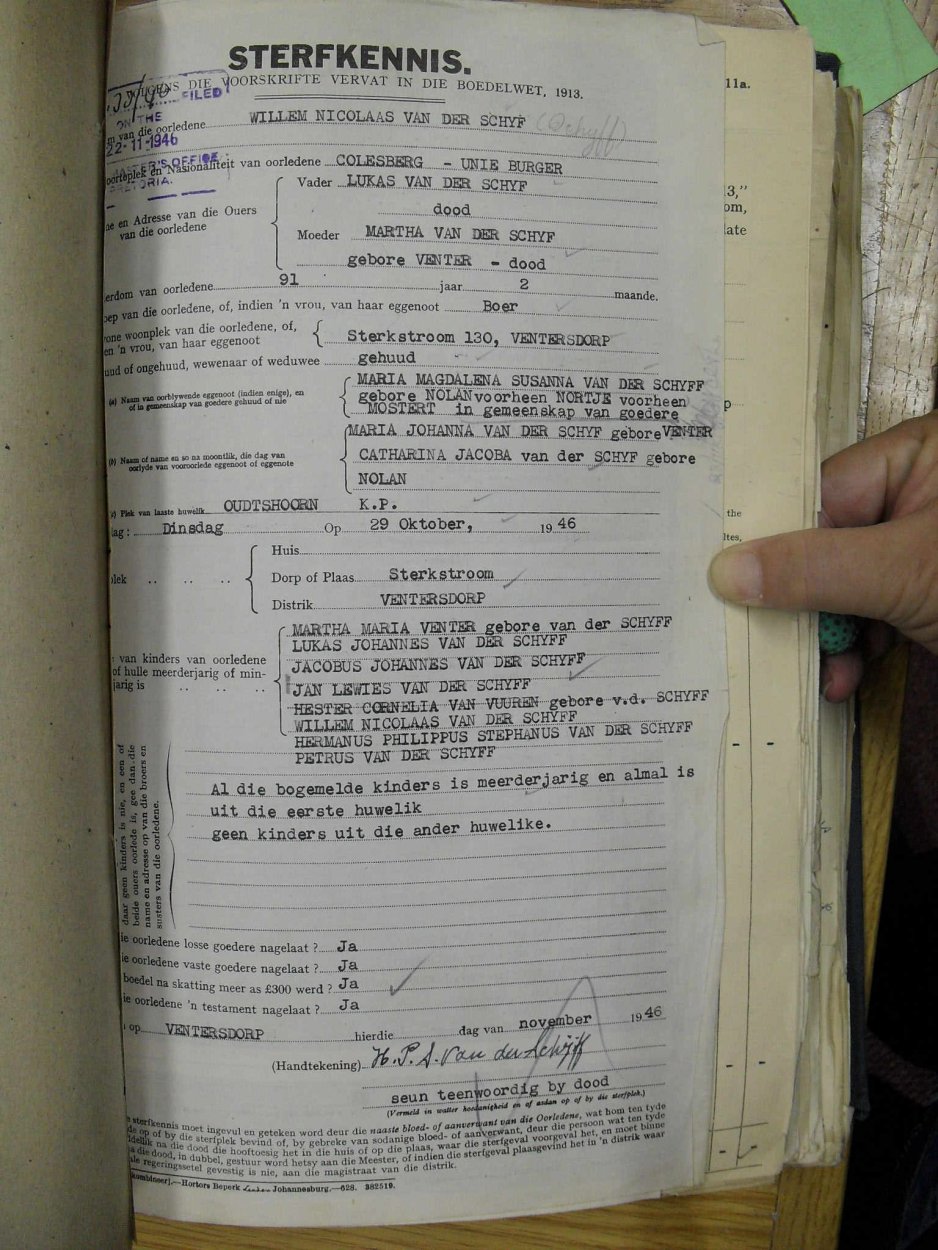 STERFKENNIS.
VOLGENS DIE VOORSKRIFTE VERVAT IN DIE BOEDELWET, 1913.
FILED
ON THE
22-11-1946
van die oorledene WILLEM NICOLAAS VAN DER SCHYF (Schyff)
en Nasionaliteit van oorledene COLESBERG - UNIE BURGER
OFFICE
Vader LUKAS VAN DER SCHYF
dood
en Adresse van die Ouers
van die oorledene
Moeder MARTHA VAN DER SCHYF
gebore VENTER - dood
erdom van oorledene 91 jaar 2 maande.
ep van die oorledene, of, indien 'n vrou, van haar eggenoot Boer
one woonplek van die oorledene, of,
en 'n vrou, van haar eggenoot
Sterkstroom 130, VENTERSDORP
uud of ongehuud, wewenaar of weduwee gehuud
(a) Naam van oorblywende eggenoot (indien enige), en
of in gemeenskap van goedere gehuud of nie
MARIA MAGDALENA SUSANNA VAN DER SCHYFF
gebore NOLANvoorheen NORTJE voorheen
MOSTERT in gemeenskap van goedere
(b) Naam of name en so na moontlik, die dag van
oorlyde van vooroorlede eggenoot of eggenote
MARIA JOHANNA VAN DER SCHYF geboreVENTER
CATHARINA JACOBA van der SCHYF gebore
NOLAN
c) Plek van laaste huwelik OUDTSHOORN K.P.
ag: Dinsdag Op 29 Oktober, 1946
lek
Huis
Dorp of Plaas Sterkstroom
Distrik VENTERSDORP
van kinders van oorledene
of hulle meerderjarig of min-
jarig is
MARTHA MARIA VENTER gebore van der SCHYFF
LUKAS JOHANNES VAN DER SCHYFF
JACOBUS JOHANNES VAN DER SCHYFF
JAN LEWIES VAN DER SCHYFF
HESTER CORNELIA VAN VUUREN gebore v.d. SCHYFF
WILLEM NICOLAAS VAN DER SCHYFF
HERMANUS PHILIPPUS STEPHANUS VAN DER SCHYFF
PETRUS VAN DER SCHYFF
daar geen kinders is nie, en een of
beide ouers oorlede is, gee dan die
name en adresse op van die broers en
susters van die oorledene.
Al die bogemelde kinders is meerderjarig en almal is
uit die eerste huwelik
geen kinders uit die ander huwelike.
ie oorledene losse goedere nagelaat? Ja
ie oorledene vaste goedere nagelaat? Ja
boedel na skatting meer as £300 werd? Ja
ie oorledene 'n testament nagelaat? Ja
op VENTERSDORP hierdie dag van november 1946
(Handtekening) H.P.S. van der Schyff
seun teenwoordig by dood
(Vermeld in watter hoedanigheid en of aldan op of by die sterfplek.)
sterfkennis moet ingevul en geteken word deur die naaste bloed- of aanverwant van die Oorledene, wat hom ten tyde
op of by die sterfplek bevind of, by gebreke van sodanige bloed- of aanverwant, deur die persoon wat ten tyde
na die dood die hooftoesig het in die huis of op die plaas, waar die sterfgeval voorgeval het, en moet binne
die dood, in dubbel, gestuur word hetsy aan die Meester, of indien die sterfgeval plaasgevind het in 'n distrik waar
regeringssetel gevestig is nie, aan die magistraat van die distrik.
Hortors Beperk Johannesburg.—628. 382519.
11a.
13,"
om,
late
p
the
ltes,